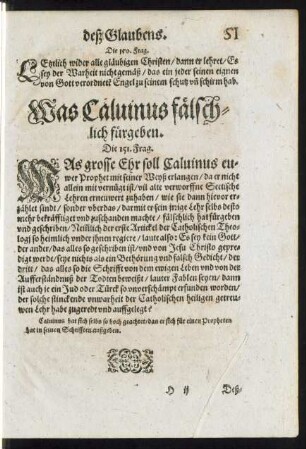 deß Glaubens. 51
Die 150. Frag.
Letzlich wider alle gläubigen Christen / dann er lehret / Es
sey der Warheit nicht gemäß / das ein jeder seinen eignen
von Gott verordneten Engel zu seinem schutz vñ schirm hab.
Was Caluinus fälsch-
lich fürgeben.
Die 151. Frag.
WAs grosse Ehr soll Caluinus eu-
wer Prophet mit seiner Weyß erlangen / da er nicht
allein mit vernügt ist / vil alte verworffne Sectische
Lehren erneuwert zuhaben / wie sie dann hievor er-
zählet sindt / sonder vberdas / darmit er sein jrrige Lehr selbs desto
mehr bekräfftiget vnd zuschanden machte / fälschlich hat fürgeben
vnd geschriben / Nemlich der erste Artickel der Catholischen Theo-
logi so heimlich vnder jhnen regiere / laute also: Es sey kein Gott /
der ander / das alles so geschriben ist / vnd von Jesu Christo gepre-
digt werde / seye nichts als ein Bethörung vnd falsch Gedicht / der
dritte / das alles so die Schrifft von dem ewigen Leben vnd von der
Aufferständnuß der Todten beweist / lauter Fablen seyen / dann
ist auch je ein Jud oder Türck so vnverschämpt erfunden worden /
der solche stinckende vnwarheit der Catholischen heiligen getreu-
wen Lehr habe zugeredt vnd auffgelegt?
Caluinus hat sich selbs so hoch geachtet / das er sich für einen Propheten
hat in seinen Schrifften außgeben.
H ij Deß-